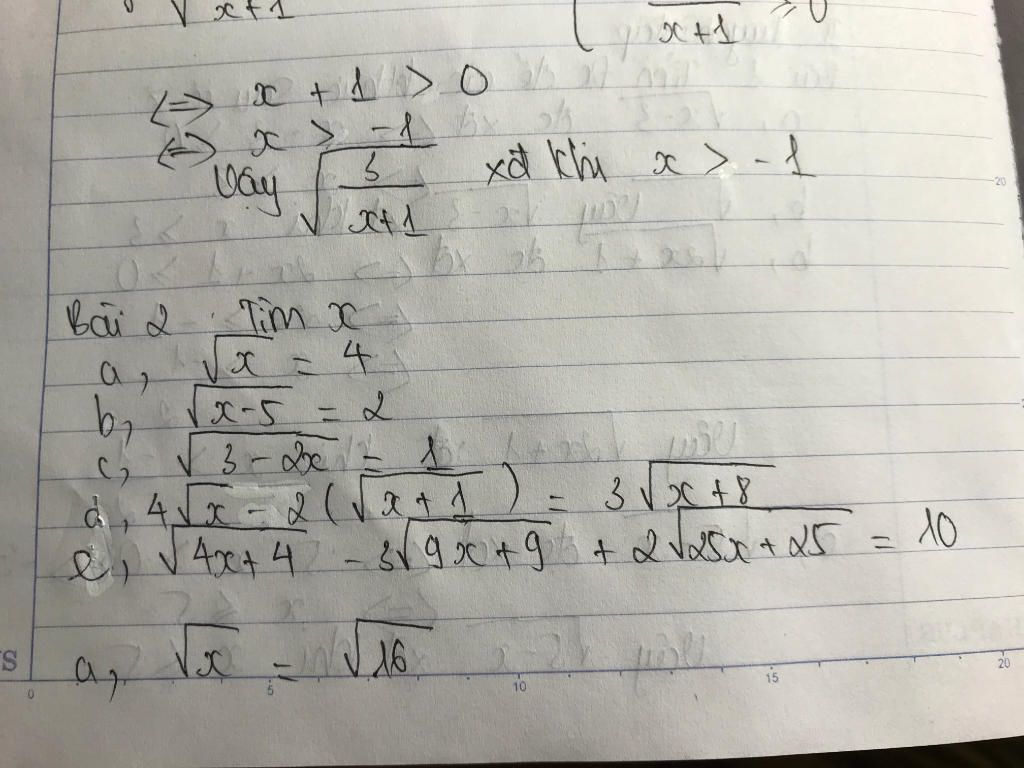 √x+1
x+1 ≥ 0
<=> x + 1 > 0
<=> x > -1
Vậy √(3/(x+1)) xđ khi x > -1
Bài 2 Tìm x
a, √x = 4
b, √(x-5) = 2
c, √(3 - 2x) = 1
d, 4√x - 2(√(x + 1)) = 3√(x+8)
e, √(4x+4) - 3√(9x+9) + 2√(25x+25) = 10
a, √x = √16
S
0 5 10 15 20
20